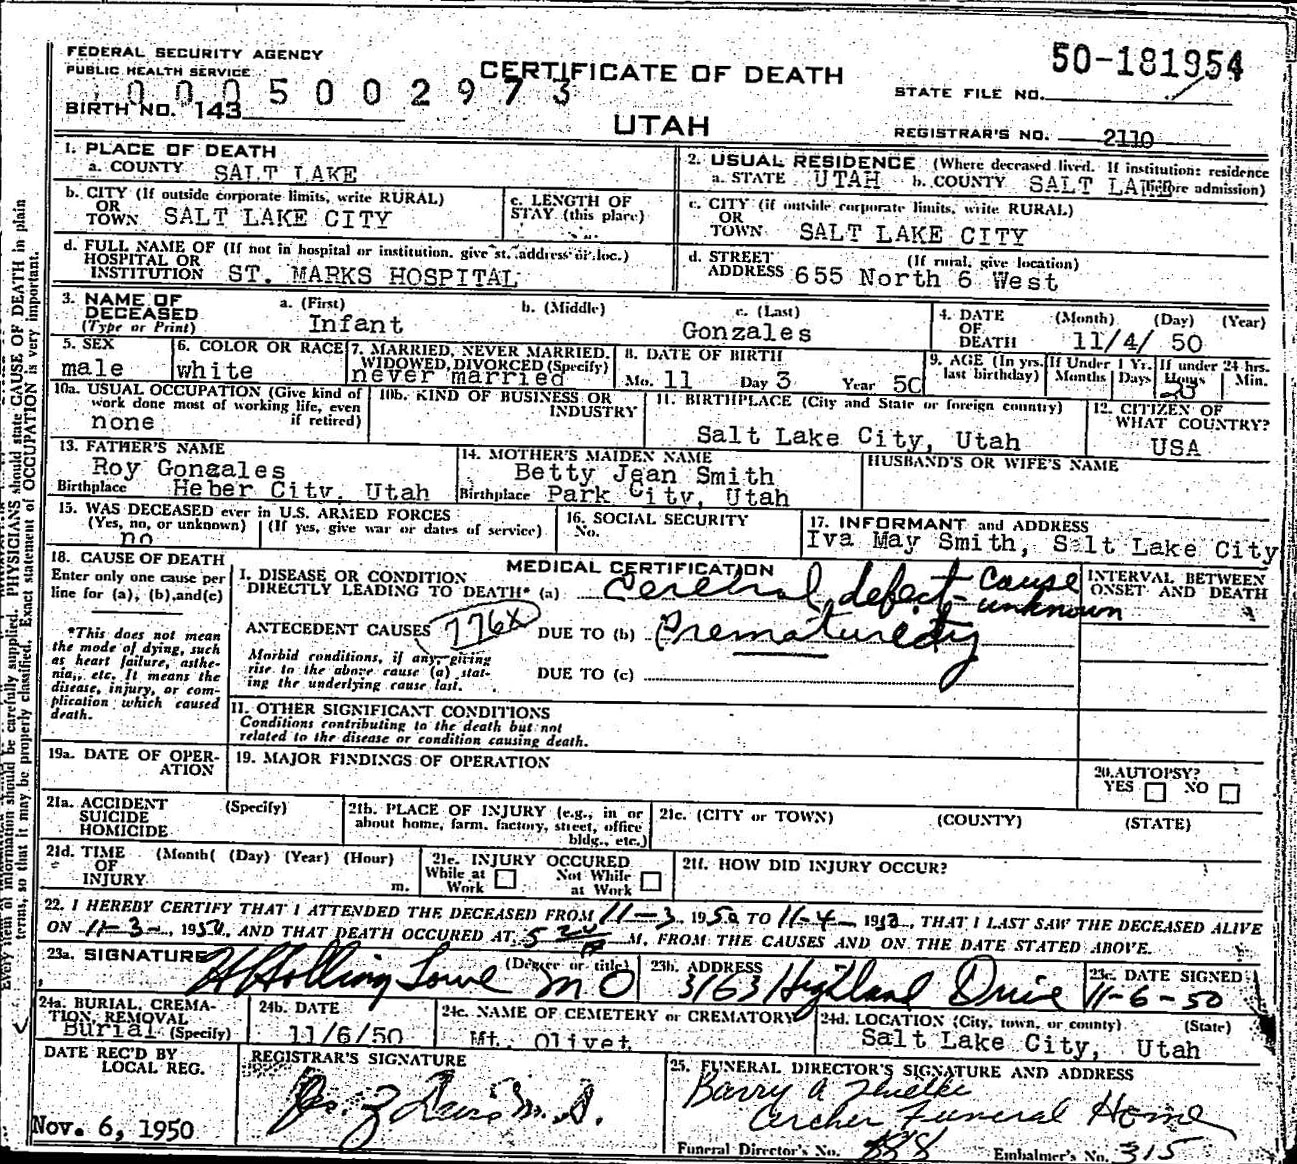 FEDERAL SECURITY AGENCY
PUBLIC HEALTH SERVICE
CERTIFICATE OF DEATH
50-181954
STATE FILE NO.
0005002973
BIRTH NO. 143
UTAH
REGISTRAR'S NO. 2110
1. PLACE OF DEATH
a. COUNTY SALT LAKE
2. USUAL RESIDENCE (Where deceased lived. If institution: residence before admission)
a. STATE UTAH b. COUNTY SALT LAKE
b. CITY (If outside corporate limits, write RURAL)
OR
TOWN SALT LAKE CITY
c. LENGTH OF
STAY (this place)
c. CITY (if outside corporate limits, write RURAL)
OR
TOWN SALT LAKE CITY
d. FULL NAME OF (If not in hospital or institution, give st. address or loc.)
HOSPITAL OR
INSTITUTION ST. MARKS HOSPITAL
d. STREET (If rural, give location)
ADDRESS 655 North 6 West
3. NAME OF
DECEASED
(Type or Print)
a. (First) b. (Middle) c. (Last)
Infant Gonzales
4. DATE (Month) (Day) (Year)
OF
DEATH 11/4/ 50
5. SEX
male
6. COLOR OR RACE
white
7. MARRIED, NEVER MARRIED,
WIDOWED, DIVORCED (Specify)
never married
8. DATE OF BIRTH
Mo. 11 Day 3 Year 50
9. AGE (In yrs. last birthday)
If Under 1 Yr.
Months Days
If under 24 hrs.
Hours Min.
10a. USUAL OCCUPATION (Give kind of
work done most of working life, even
if retired)
none
10b. KIND OF BUSINESS OR
INDUSTRY
11. BIRTHPLACE (City and State or foreign country)
Salt Lake City, Utah
12. CITIZEN OF
WHAT COUNTRY?
USA
13. FATHER'S NAME
Roy Gonzales
Birthplace Heber City, Utah
14. MOTHER'S MAIDEN NAME
Betty Jean Smith
Birthplace Park City, Utah
HUSBAND'S OR WIFE'S NAME
15. WAS DECEASED ever in U.S. ARMED FORCES
(Yes, no, or unknown) (If yes, give war or dates of service)
no
16. SOCIAL SECURITY
No.
17. INFORMANT and ADDRESS
Iva May Smith, Salt Lake City
18. CAUSE OF DEATH
Enter only one cause per
line for (a), (b), and (c)
*This does not mean
the mode of dying, such
as heart failure, asthe-
nia, etc. It means the
disease, injury, or com-
plication which caused
death.
MEDICAL CERTIFICATION
I. DISEASE OR CONDITION
DIRECTLY LEADING TO DEATH* (a) Cerebral defect - cause
unknown
INTERVAL BETWEEN
ONSET AND DEATH
ANTECEDENT CAUSES 776X DUE TO (b) Prematuredty
Morbid conditions, if any, giving
rise to the above cause (a) stat-
ing the underlying cause last.
DUE TO (c)
II. OTHER SIGNIFICANT CONDITIONS
Conditions contributing to the death but not
related to the disease or condition causing death.
19a. DATE OF OPER-
ATION
19. MAJOR FINDINGS OF OPERATION
20. AUTOPSY?
YES NO
21a. ACCIDENT (Specify)
SUICIDE
HOMICIDE
21b. PLACE OF INJURY (e.g., in or
about home, farm, factory, street, office
bldg., etc.)
21c. (CITY or TOWN) (COUNTY) (STATE)
21d. TIME (Month( (Day) (Year) (Hour)
OF
INJURY m.
21e. INJURY OCCURED
While at Work Not While at Work
21f. HOW DID INJURY OCCUR?
22. I HEREBY CERTIFY THAT I ATTENDED THE DECEASED FROM 11-3, 1950 TO 11-4-, 1950, THAT I LAST SAW THE DECEASED ALIVE
ON 11-3-, 1950, AND THAT DEATH OCCURED AT 5 20 P M, FROM THE CAUSES AND ON THE DATE STATED ABOVE.
23a. SIGNATURE (Degree or title)
H Holling Lowe MD
23b. ADDRESS
3163 Highland Drive
23c. DATE SIGNED
11-6-50
24a. BURIAL, CREMA-
TION, REMOVAL
Burial (Specify)
24b. DATE
11/6/50
24c. NAME OF CEMETERY or CREMATORY
Mt. Olivet
24d. LOCATION (City, town, or county) (State)
Salt Lake City, Utah
DATE REC'D BY
LOCAL REG.
Nov. 6, 1950
REGISTRAR'S SIGNATURE
25. FUNERAL DIRECTOR'S SIGNATURE AND ADDRESS
Barry A
Archer Funeral Home
Funeral Director's No. 888 Embalmer's No. 315
Every item of information should be carefully supplied. PHYSICIANS should state CAUSE OF DEATH in plain
terms, so that it may be properly classified. Exact statement of OCCUPATION is very important.